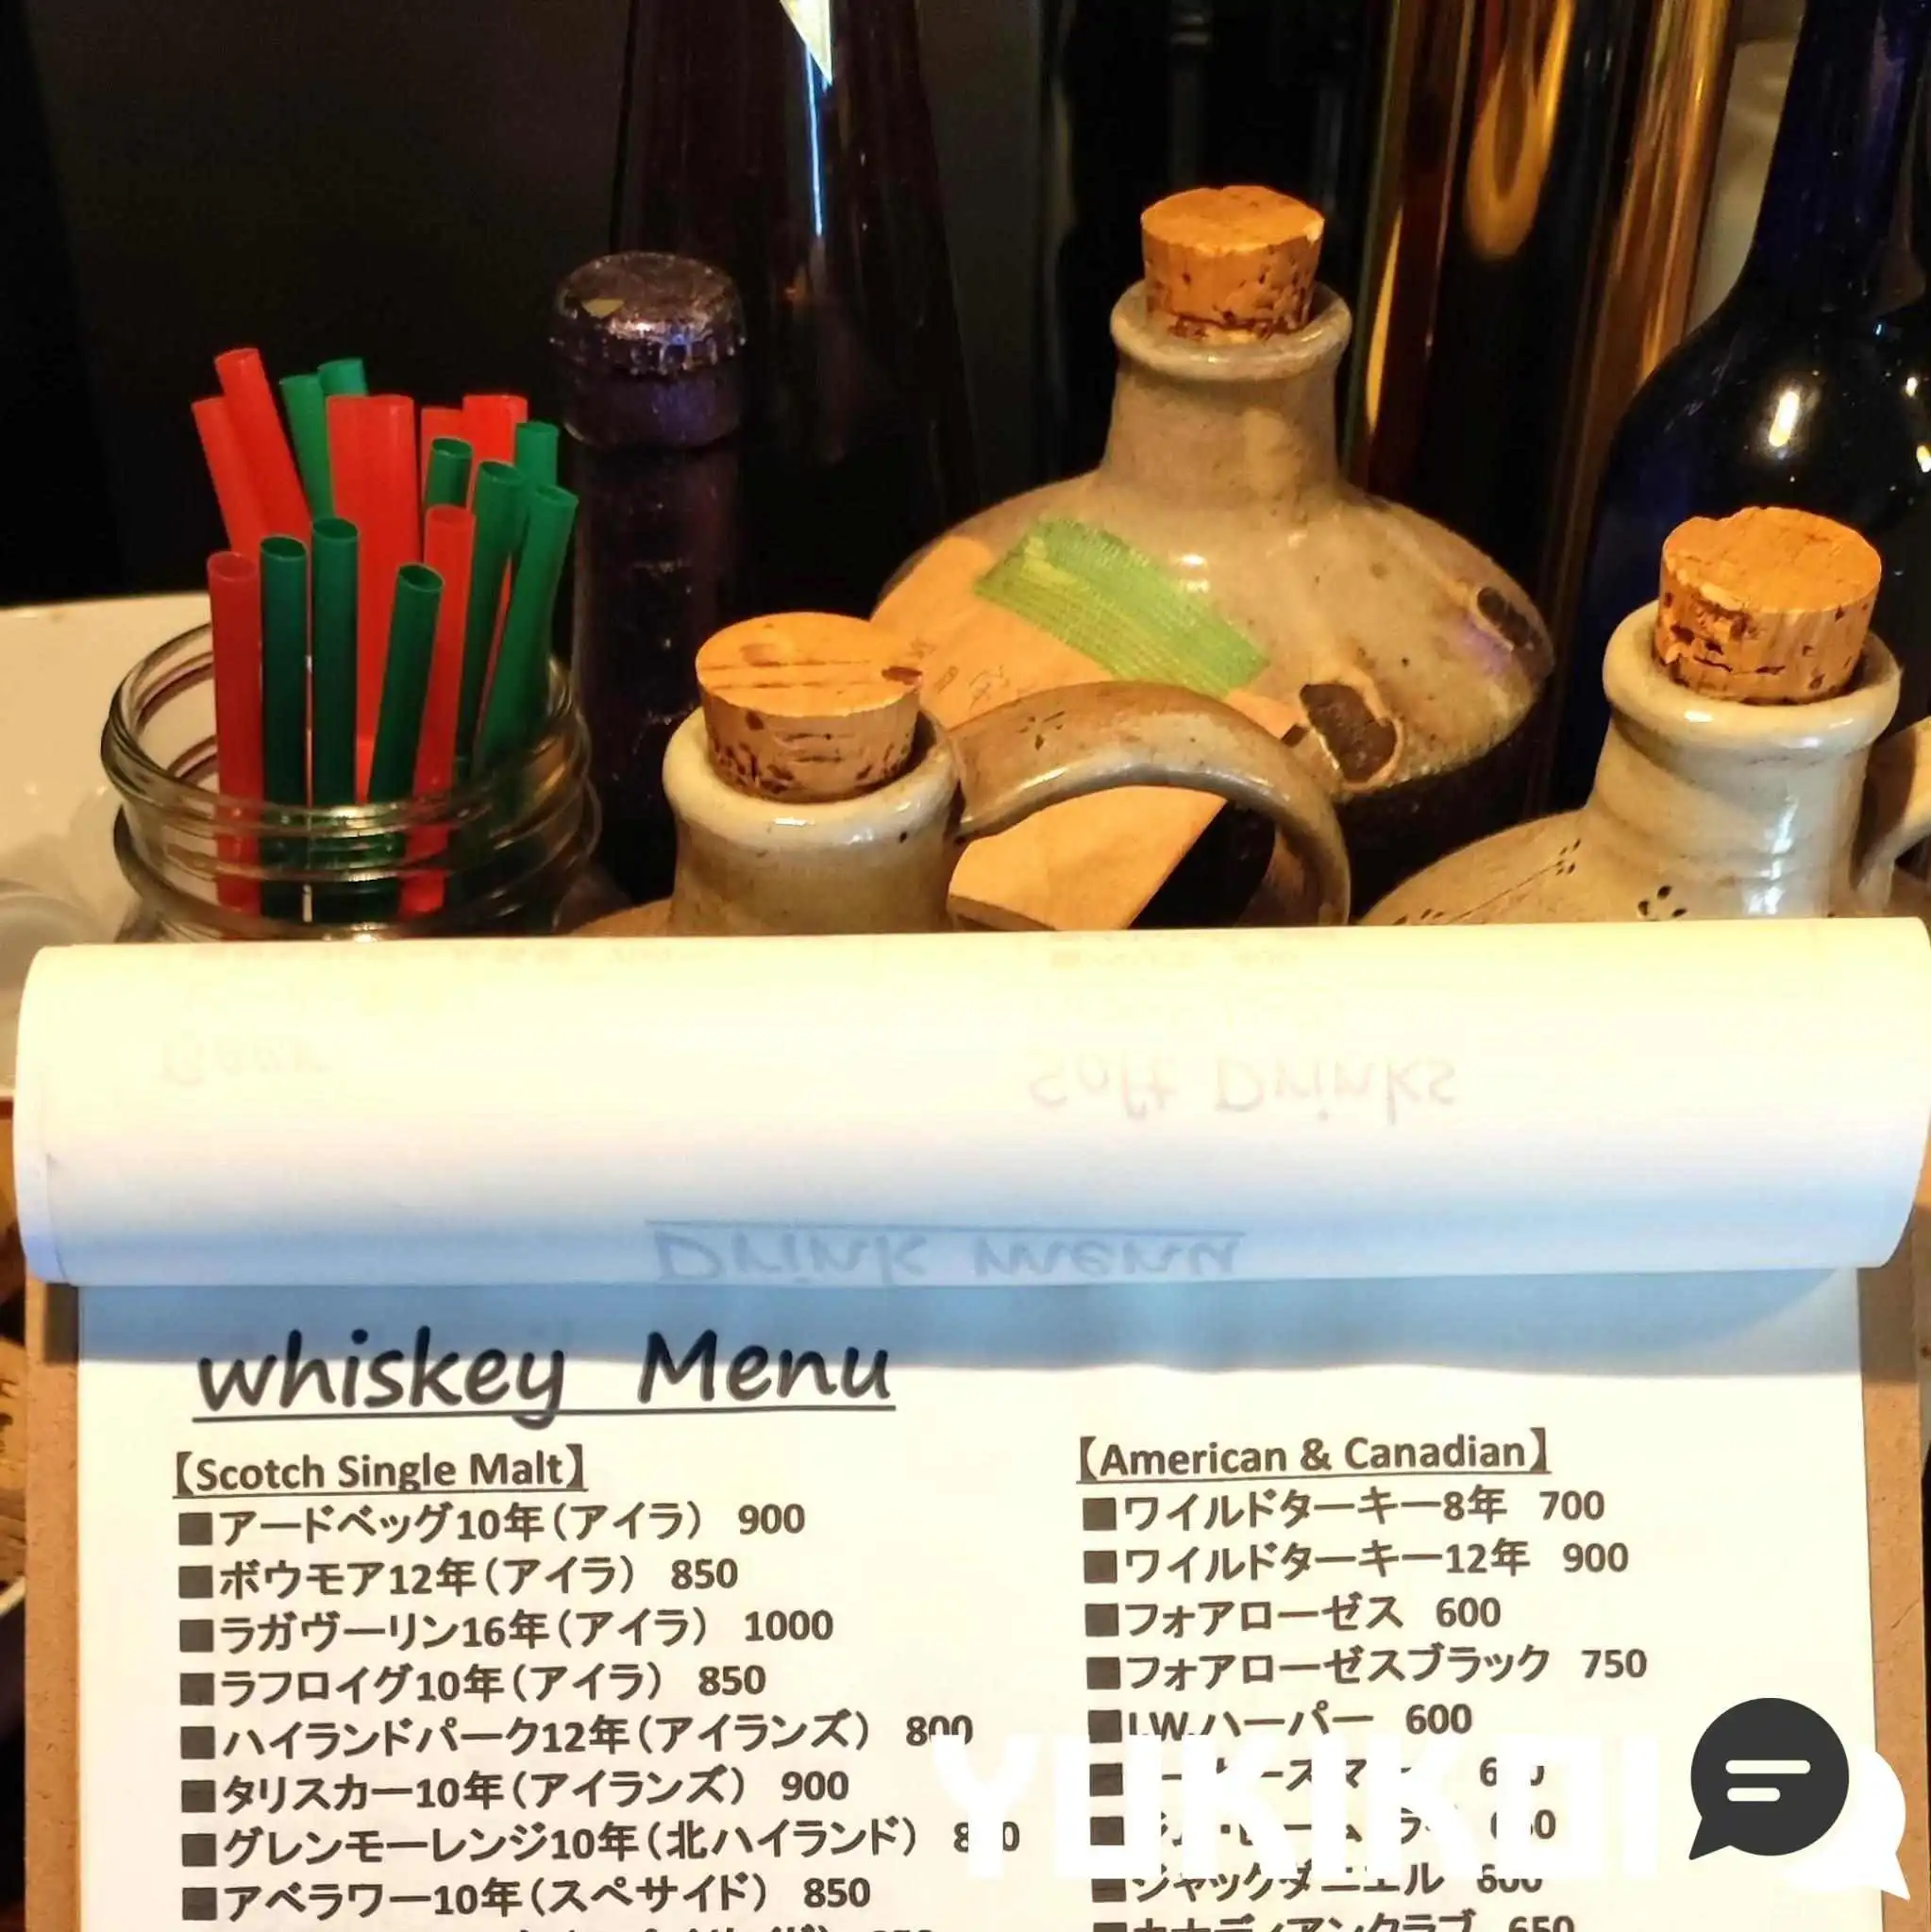 Soft Drinks
Drink menu
whiskey Menu
【Scotch Single Malt】
■アードベッグ10年（アイラ） 900
■ボウモア12年（アイラ） 850
■ラガヴーリン16年（アイラ） 1000
■ラフロイグ10年（アイラ） 850
■ハイランドパーク12年（アイランズ） 800
■タリスカー10年（アイランズ） 900
■グレンモーレンジ10年（北ハイランド）
■アベラワー10年（スペサイド） 850
【American & Canadian】
■ワイルドターキー8年 700
■ワイルドターキー12年 900
■フォアローゼス 600
■フォアローゼスブラック 750
■I.W.ハーパー 600
■ジャックダニエル 600
■カナディアンクラブ 650